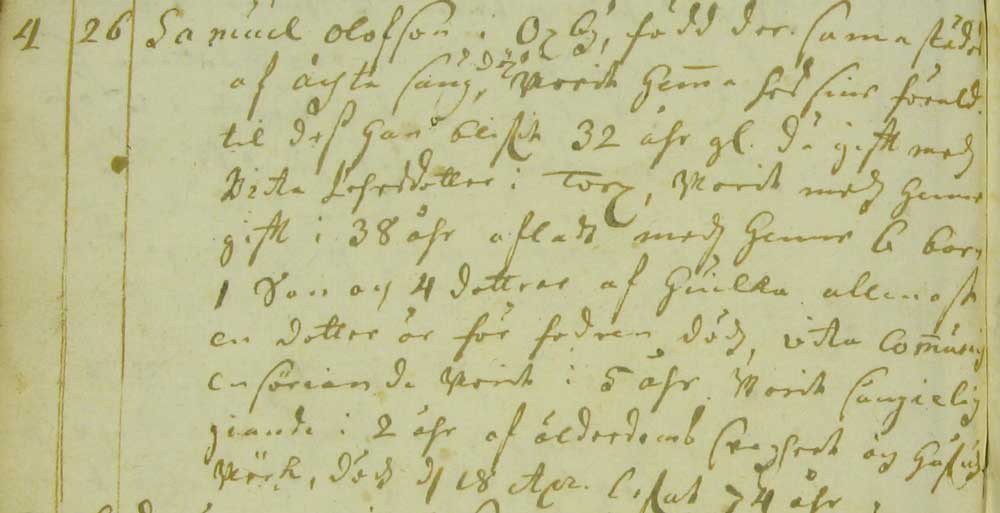 4 26 Samuel Olofson i Ozby, född der samastädes
af ächta säng, Warit hema hos sine föräld.
til des han blifvit 32 åhr gl. då gift med
dotter i Torp, Warit med henne
gift i 38 åhr aflat med henne 6 barn
1 Son och 4 dottrar af huilka allenast
en dotter är för fadren död,
Warit i 5 åhr Warit sängielig
giande i 2 åhr af ålderdoms och
Wärk, död d 18 Apr. 74 åhr.